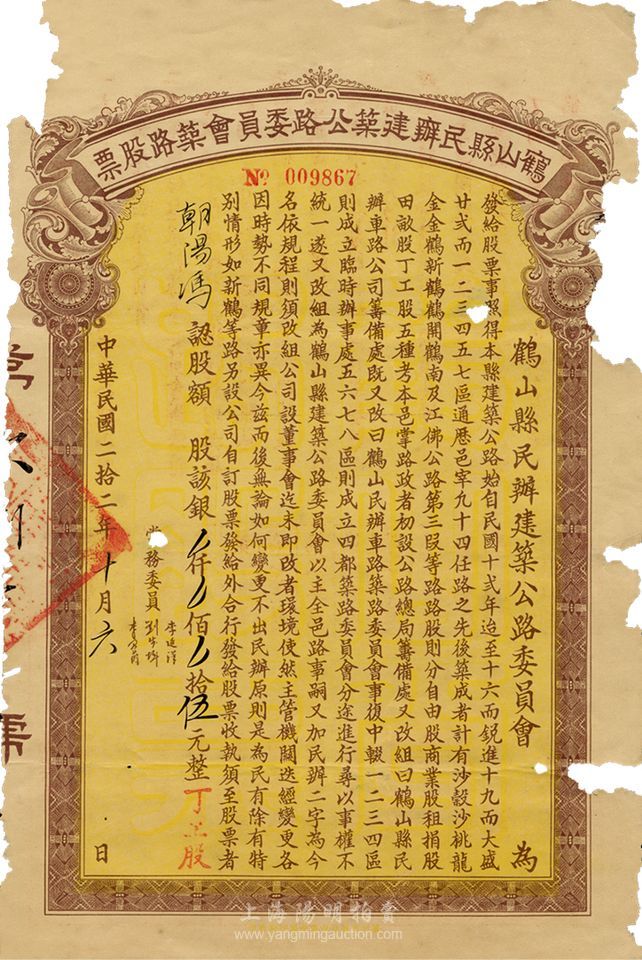 鶴山縣民辦建築公路委員會築路股票
№ 009867
鶴山縣民辦建築公路委員會 為
發給股票事照得本縣建築公路始自民國十弍年迨至十六而鋭進十九而大盛
廿弍而一二三四五七區通應邑宰九十四任路之先後築成者計有沙穀沙桃龍
金金鶴新鶴鶴開鶴南及江佛公路第三段等路路股則分自由股商業股租捐股
田畝股丁工股五種考本邑掌路政者初設公路總局籌備處又改組曰鶴山縣民
辦車路公司籌備處既又改曰鶴山民辦車路築路委員會事復中輟一二三四區
則成立臨時辦事處五六七八區則成立四都築路委員會分途進行尋以事權不
統一遂又改組為鶴山縣建築公路委員會以主全邑路事嗣又加民辦二字為今
名依規程則須改組公司設董事會迄未即改者環境使然主管機關迭經變更各
因時勢不同規章亦異今茲而後無論如何變更不出民辦原則是為民有除有特
別情形如新鶴等路另設公司自訂股票發給外合行發給股票收執須至股票者
朝陽馮 認股額 股該銀 仟 佰 拾伍元整 丁工股
常務委員
中華民國二拾二年十月六日
上海陽明拍賣
www.yangmingauction.com